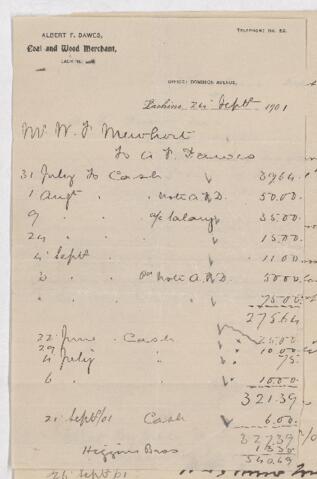 ALBERT F. DAWES,
Coal and Wood Merchant,
TELEPHONE No. 82.
OFFICE: DOMINION AVENUE,
Lachine, 24 Septr 1901
Mr W. J. Mewhort
To A F Dawes
31 July To Cash 39.64
1 Augt " Note A.F.D. 50.00
9 " a/c Salary 35.00
24 " 15.00
4 Septr " 11.00
" Note A.F.D. 50.00
" " 75.00
275.64
22 June Cash 25.00
29 " 10.00
4 July " .75
6 " 10.00
321.39
21 Septr/01 Cash 6.00
327.39
Higgins Bros 13.30
340.69
26 Septr/01